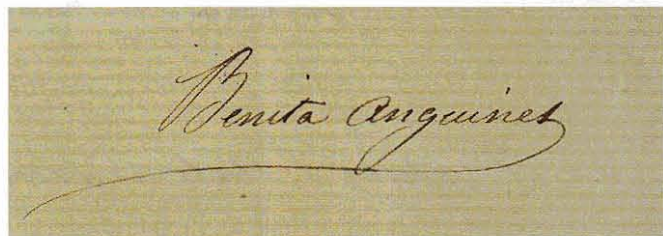 Benita Anguinet